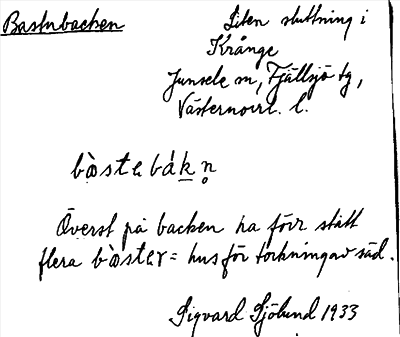 Bastubacken
Liten sluttning i
Krånge
Junsele sn, Fjällsjö tg,
Västernorrl. l.
bὰstebák̲n̥
Överst på backen ha förr stått
flera bὰster = hus för torkning av säd.
Sigvard Sjölund 1933